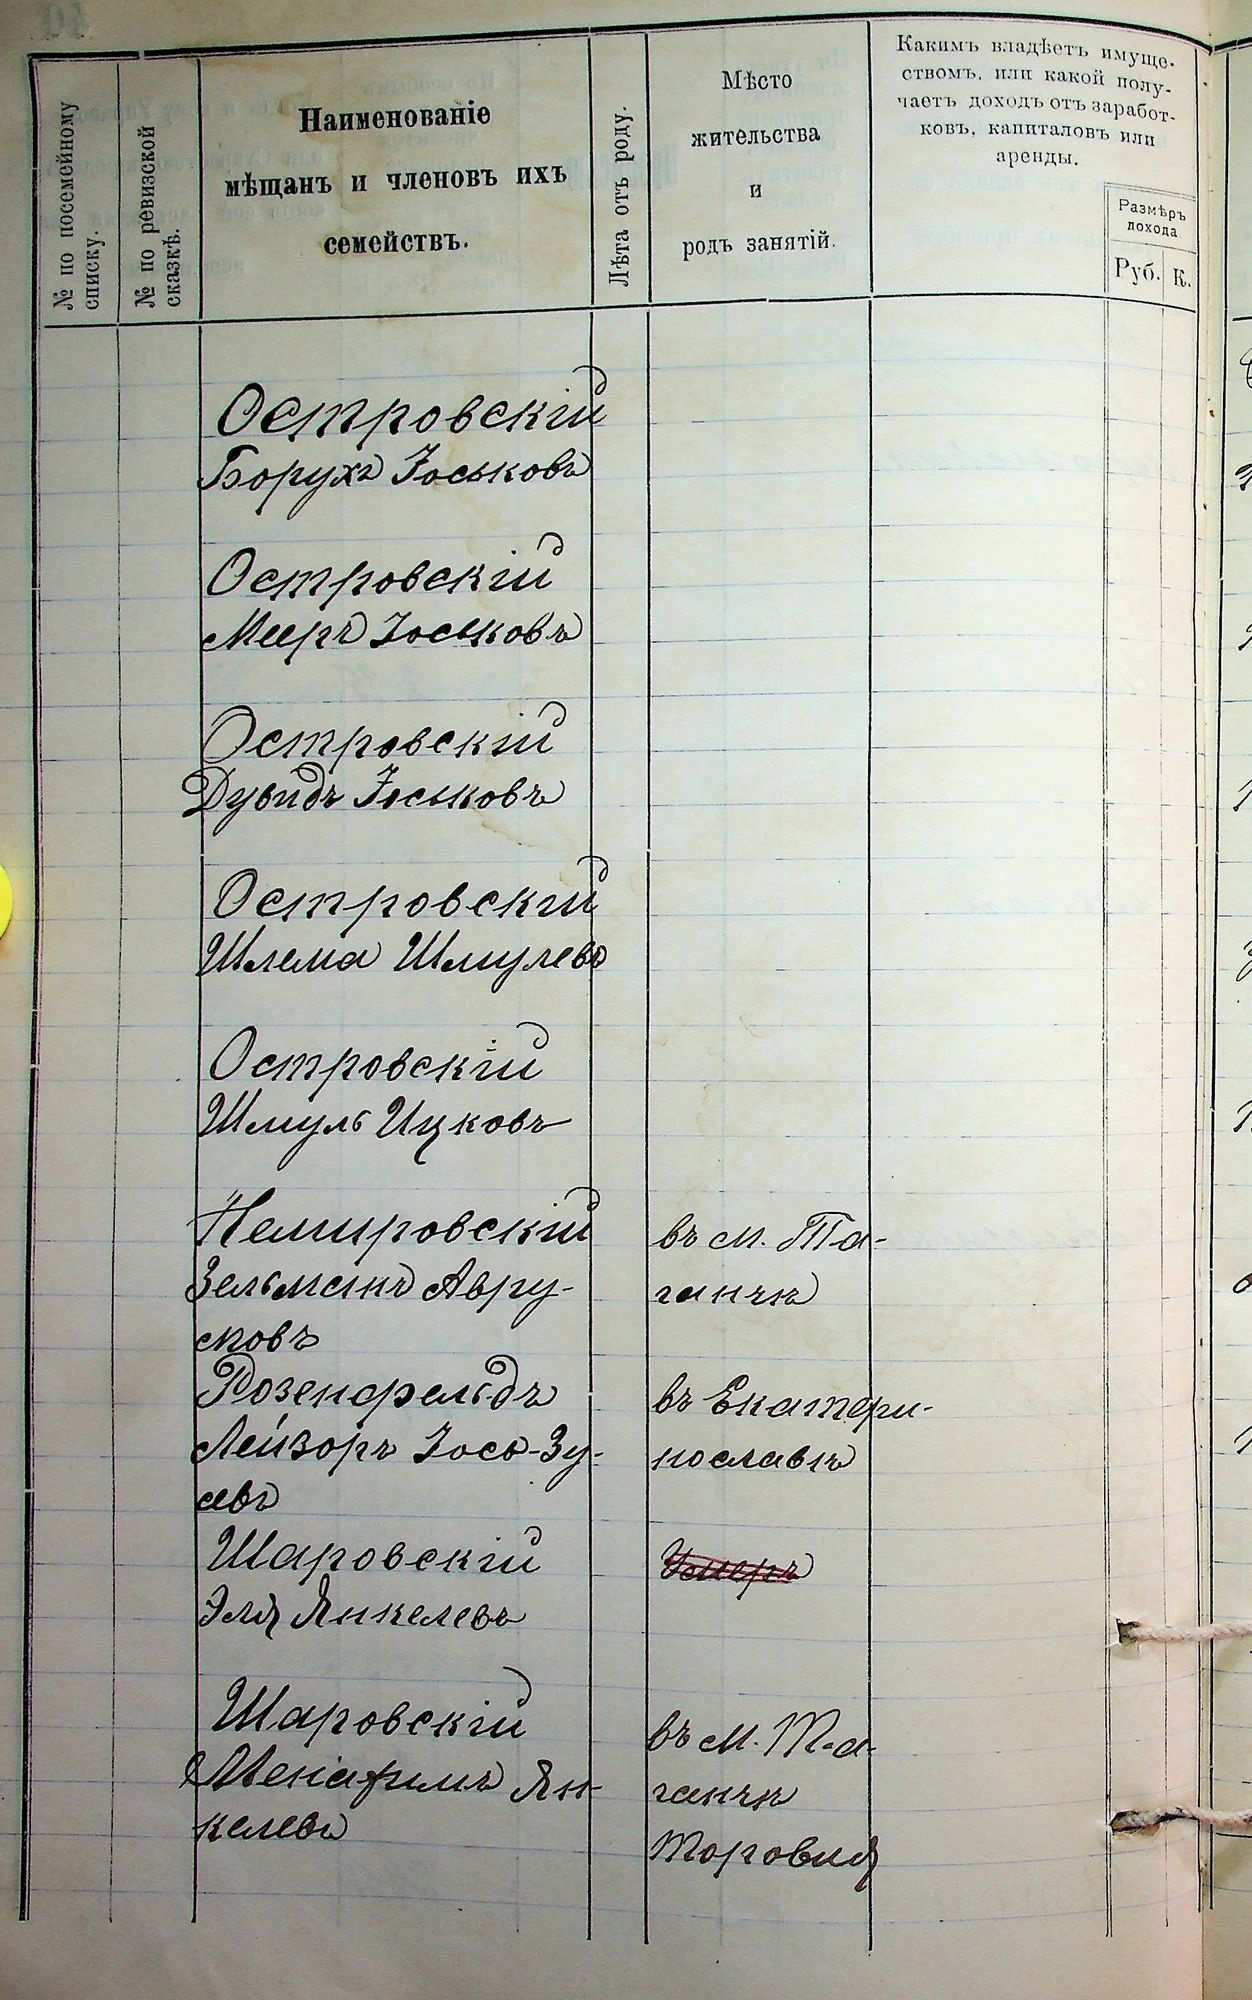 № по посемейному
списку.
№ по ревизской
сказкѣ.
Наименованіе
мѣщанъ и членовъ ихъ
семействъ.
Лѣта отъ роду.
Мѣсто
жительства
и
родъ занятій.
Какимъ владѣетъ имуще-
ствомъ, или какой полу-
чаетъ доходъ отъ заработ-
ковъ, капиталовъ или
аренды.
Размѣръ
дохода
Руб.
К.
Островскій
Борухъ Іоськовъ
Островскій
Мееръ Іоськовъ
Островскій
Дувидъ Іоськовъ
Островскій
Шлема Шмулевъ
Островскій
Шмуль Ицковъ
Немировскій
Зельманъ Авру-
мовъ
въ м. Та-
ганчѣ
Розенфельдъ
Лейзоръ Іось-Зу-
евъ
въ Екатери-
нославѣ
Шаровскій
Эля Янкелевъ
Умеръ
Шаровскій
Менаримъ Ян-
келевъ
въ м. Та-
ганчѣ
Торговля